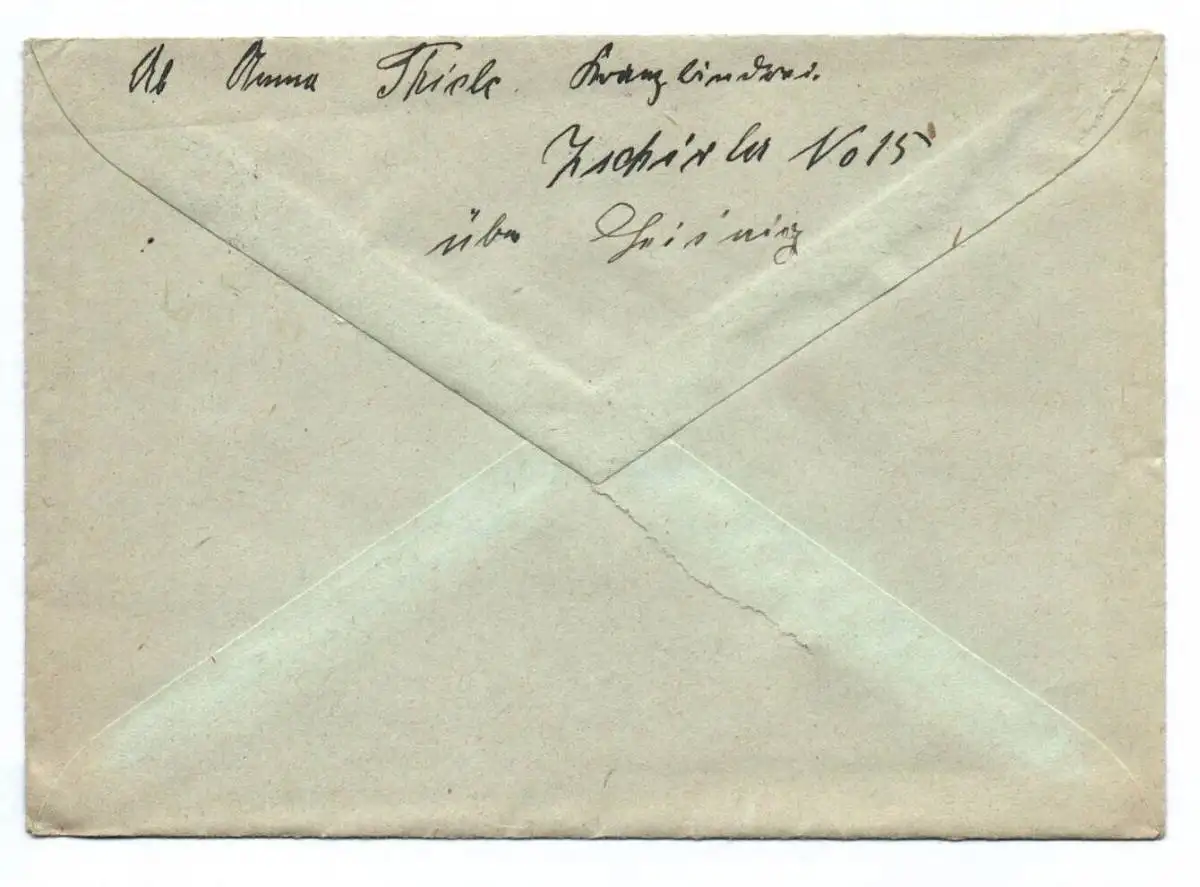 Ab Anna Thiele. Kranzbinderei.
Zschirla No 15
über Leisnig